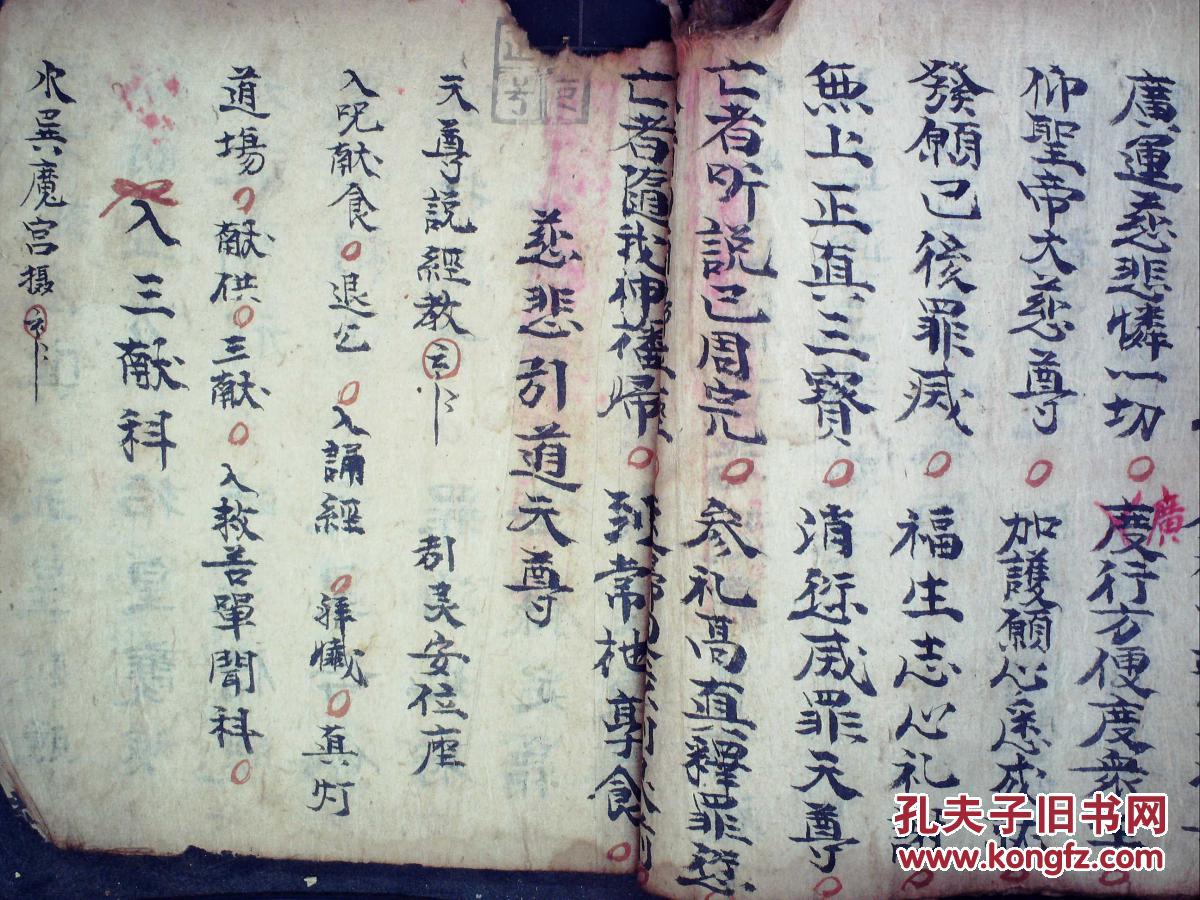 廣運慈悲憐一切 度行方便度衆生
廣
仰聖帝大慈尊 加護願心悉成
發願已後罪滅 福生志心礼
無上正真三寶 消愆滅罪天尊
亡者听説已周完 参礼髙真釋罪愆
亡者隨我神旛歸 到常地享食
慈悲引道天尊
天尊説經教 灵安位座
入咒献食 退 入誦經 拜懺 真灯
道場 献供 三献 入救苦單聞科
入三献科
水異魔宫摄
孔夫子旧书网
www.kongfz.com